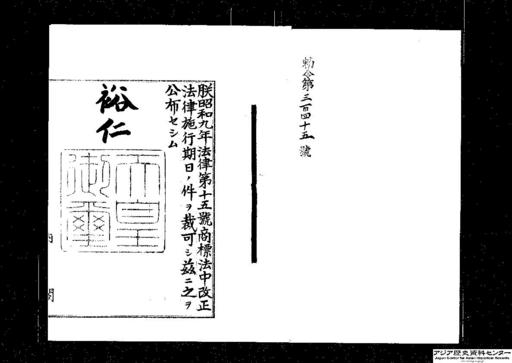 勅令第三百四十五號
朕昭和九年法律第十五號商標法中改正
法律施行期日ノ件ヲ裁可シ茲ニ之ヲ
公布セシム
裕仁
天皇
御璽
内閣
アジア歴史資料センター
Japan Center for Asian Historical Records